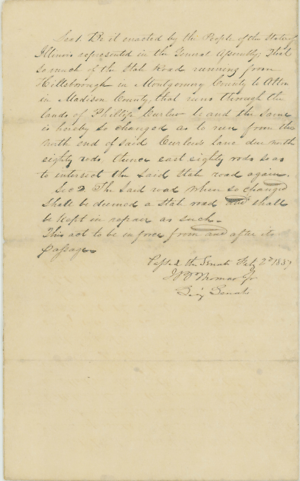 Sec 1. Be it enacted by the People of the State of
Illinois represented in the General Assembly, That
so much of the State road running from
Hillsborough in Montgomery County to Alton
in Madison County, that runs through the
lands of Phillip be and the same
is hereby so changed as to run from the
north end of said lane due north
eighty rods thence east eighty rods so as
to intersect the said State road again.
Sec 2 The said road when so changed
shall be deemed a State road and shall
be kept in repair as such.
This act to be in force from and after its
passage.
Passed the Senate Feby 2d 1837
Thomas Jr
Senate